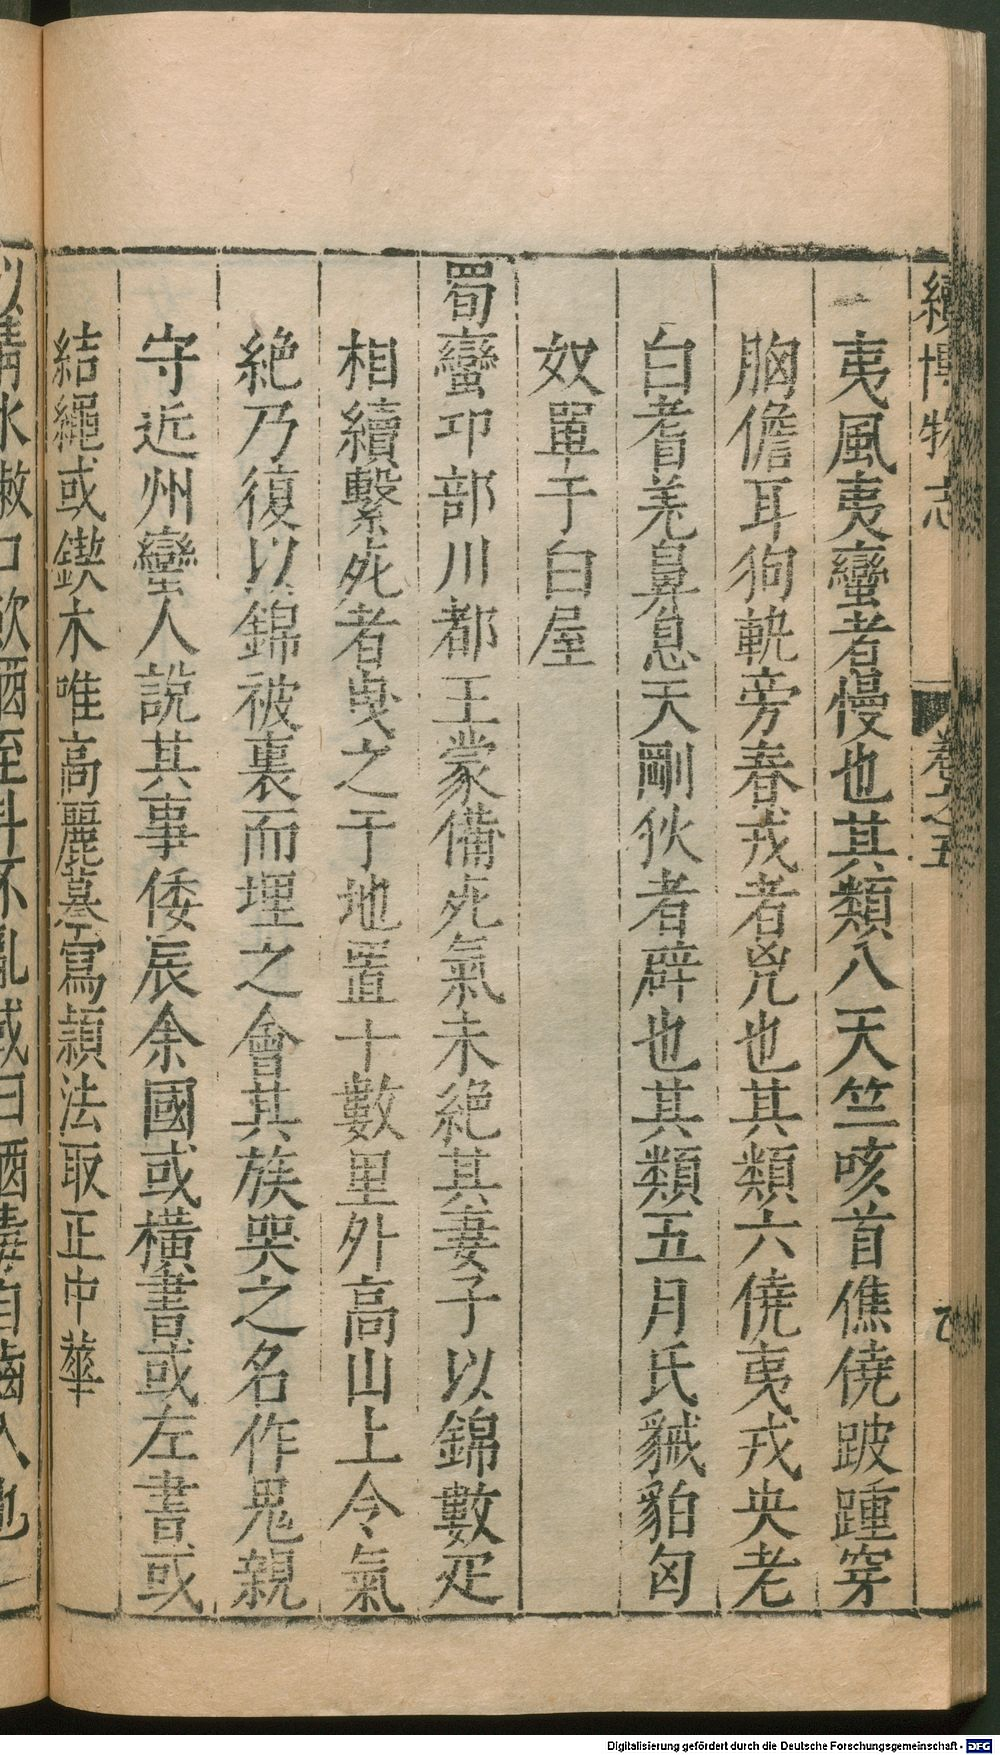 續博物志 卷之五 七
夷風夷蠻者慢也其類八天竺咳首僬僥跛踵穿
胸儋耳狗軌旁春戎者兇也其類六僥夷戎央老
白耆羌鼻息天剛狄者辟也其類五月氏貊匈
奴單于白屋
蜀蠻卭部川都王蒙備死氣未絕其妻子以錦數疋
相續繫死者曳之于地置十數里外高山上令氣
絕乃復以錦被裹而埋之會其族哭之名作鬼親
守近州蠻人說其事倭辰余國或橫書或左書或
結繩或鍥木唯高麗摹寫頴法取正中華
水漱口飲酒至斗不亂或曰酒毒自齒入也
Digitalisierung gefördert durch die Deutsche Forschungsgemeinschaft - DFG